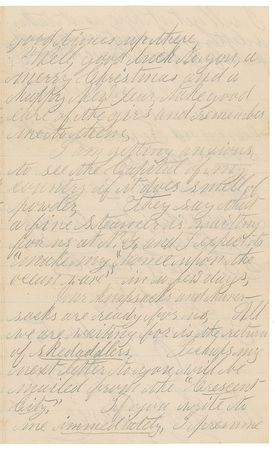 good times up there.
Then good luck to you, a
merry Christmas and a
Happy New Year. Take good
care of the girls and remember
me to them.
I am getting anxious
to see the Capital of my
country if it does smell of
powder. They say that
a fine steamer is waiting
for us at and I expect to
"make my home upon the
ocean wave" in a few days.
Our knapsacks and haver-
sacks are ready for us. All
we are waiting for is the return
of Skedaddlers. Perhaps my
next letter to you will be
mailed from the "Crescent
City." If you write to
me immediately, I presume